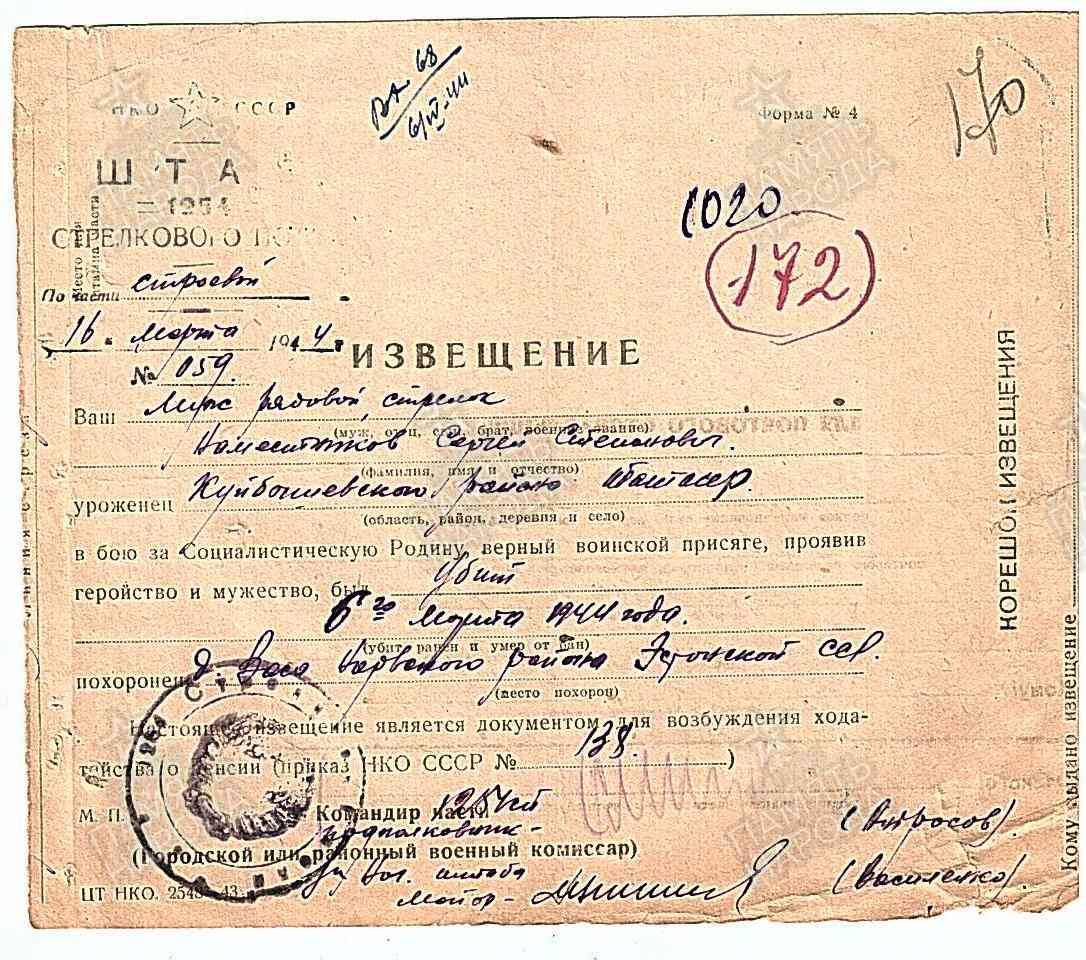 НКО СССР
вх 68
6/IV-44
Форма № 4
170
ШТА
1254
СТРЕЛКОВОГО
Место или
штампа части
1020
172
По части строевой
"16" марта 1944 г.
№ 059.
ИЗВЕЩЕНИЕ
Ваш Муж рядовой, стрелок
(муж, отец, сын, брат, военное звание)
Наместников Сергей Степанович.
(фамилия, имя и отчество)
уроженец Куйбышевского района
(область, район, деревня и село)
в бою за Социалистическую Родину, верный воинской присяге, проявив
геройство и мужество, был убит
6го марта 1944 года.
(убит, ранен и умер от ран)
похоронен д. Нарвского района Эстонской ССР.
(место похорон)
Настоящее извещение является документом для возбуждения хода-
тайства о пенсии (приказ НКО СССР № 138.)
М. П.
Командир части 1254сп
подполковник -
(Городской или районный военный комиссар)
нач. штаба
майор -
(Василенко).
ЦТ НКО. 43
КОРЕШОК ИЗВЕЩЕНИЯ
Кому выдано извещение
Линия отреза
ПАМЯТЬ НАРОДА